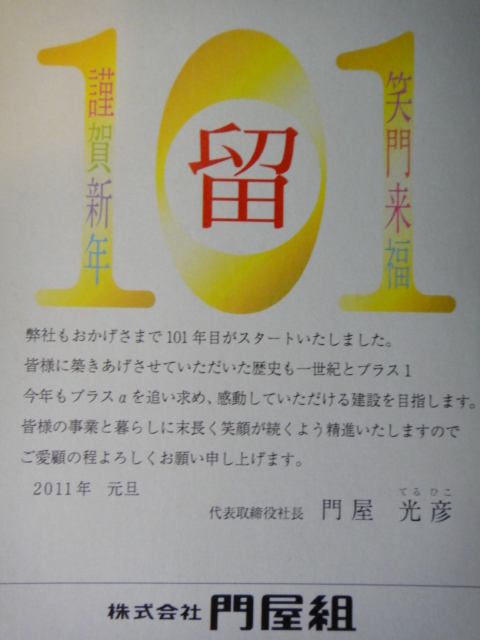 101
謹賀新年
留
笑門来福
弊社もおかげさまで101年目がスタートいたしました。
皆様に築きあげさせていただいた歴史も一世紀とプラス1
今年もプラスαを追い求め、感動していただける建設を目指します。
皆様の事業と暮らしに末長く笑顔が続くよう精進いたしますので
ご愛顧の程よろしくお願い申し上げます。
2011年 元旦
てる ひこ
代表取締役社長 門屋 光彦
株式会社 門屋組